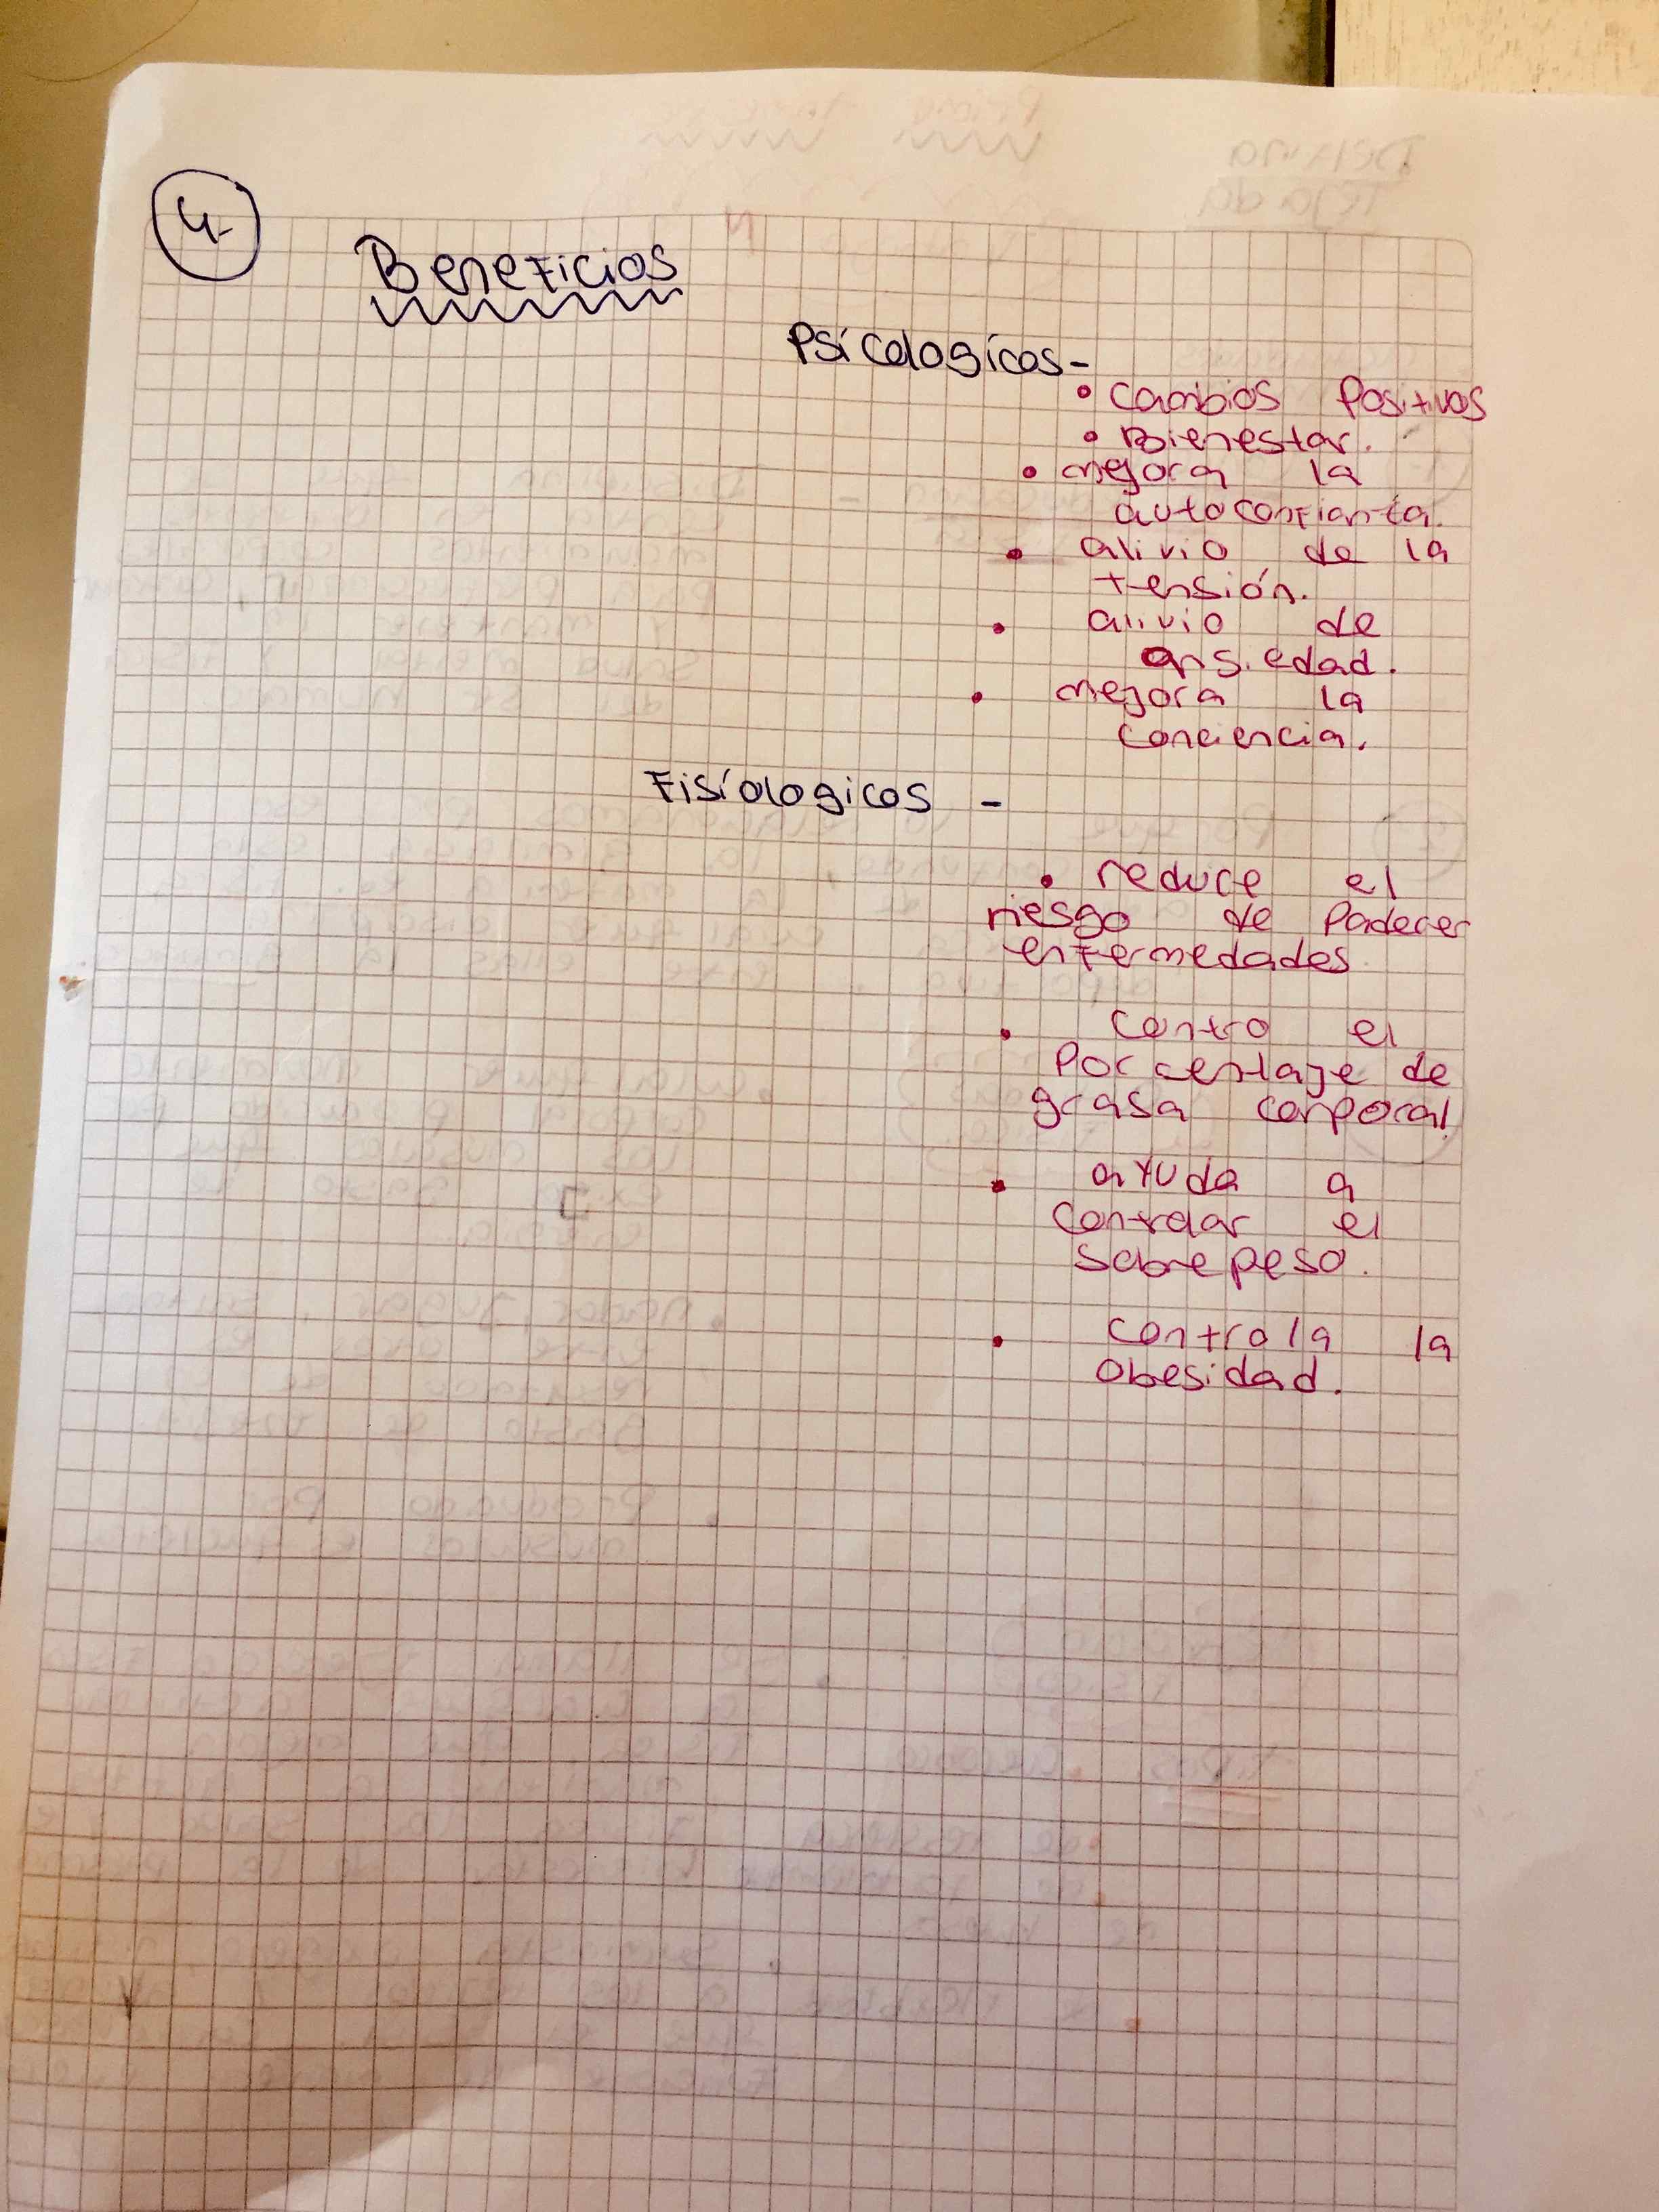 4-
Beneficios
Psícologícos-
• cambios Positivos
• Bienestar.
• mejora la
autoconfianza.
• alivio de la
tensión.
• alivio de
ansiedad.
• mejora la
conciencia.
Fisíologicos -
• reduce el
riesgo de Padecer
enfermedades
• Contro el
Porcentaje de
grasa corporal
• ayuda a
controlar el
sobrepeso.
• controla la
obesidad.